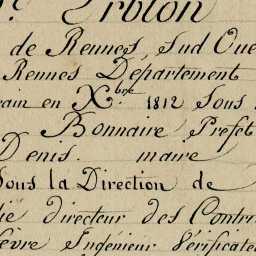 Erblon
de Rennes, Sud Oue
Rennes Département
en X.bre 1812 Sous
Bonnaire Prefet
Denis. maire
Sous la Direction de
directeur des Contri
Ingénieur Vérificate